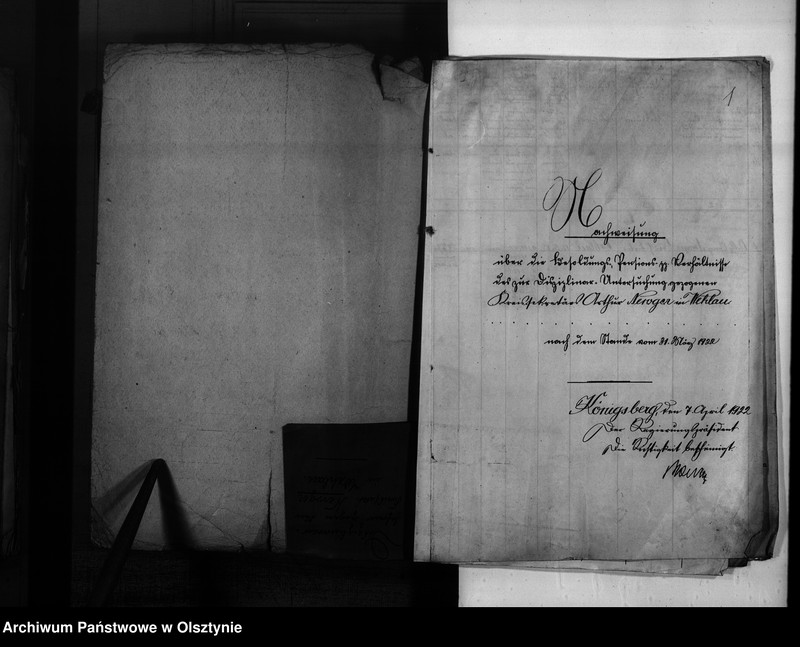 1
Nachweisung
über die Besoldungs, Pensions pp Verhältnisse
des zur Disziplinar-Untersuchung gezogenen
Kreissekretärs Arthur in Wehlau
nach dem Stande vom 31. März 1922
Königsberg, den 7. April 1922
Der Regierungspräsident
Die Richtigkeit bescheinigt
Archiwum Państwowe w Olsztynie